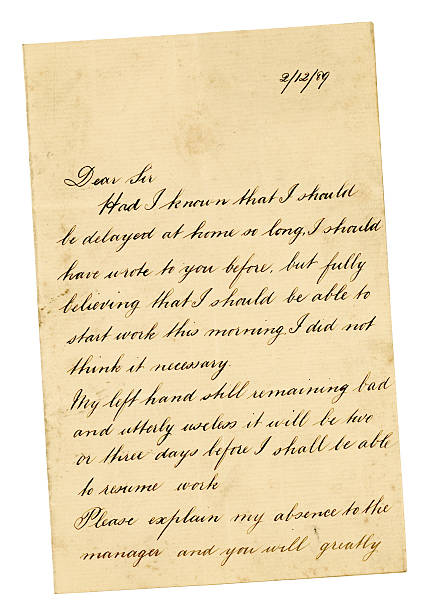 2/12/89
Dear Sir
Had I known that I should
be delayed at home so long, I should
have wrote to you before, but fully
believing that I should be able to
start work this morning I did not
think it necessary.
My left hand still remaining bad
and utterly useless it will be two
or three days before I shall be able
to resume work
Please explain my absence to the
manager and you will greatly